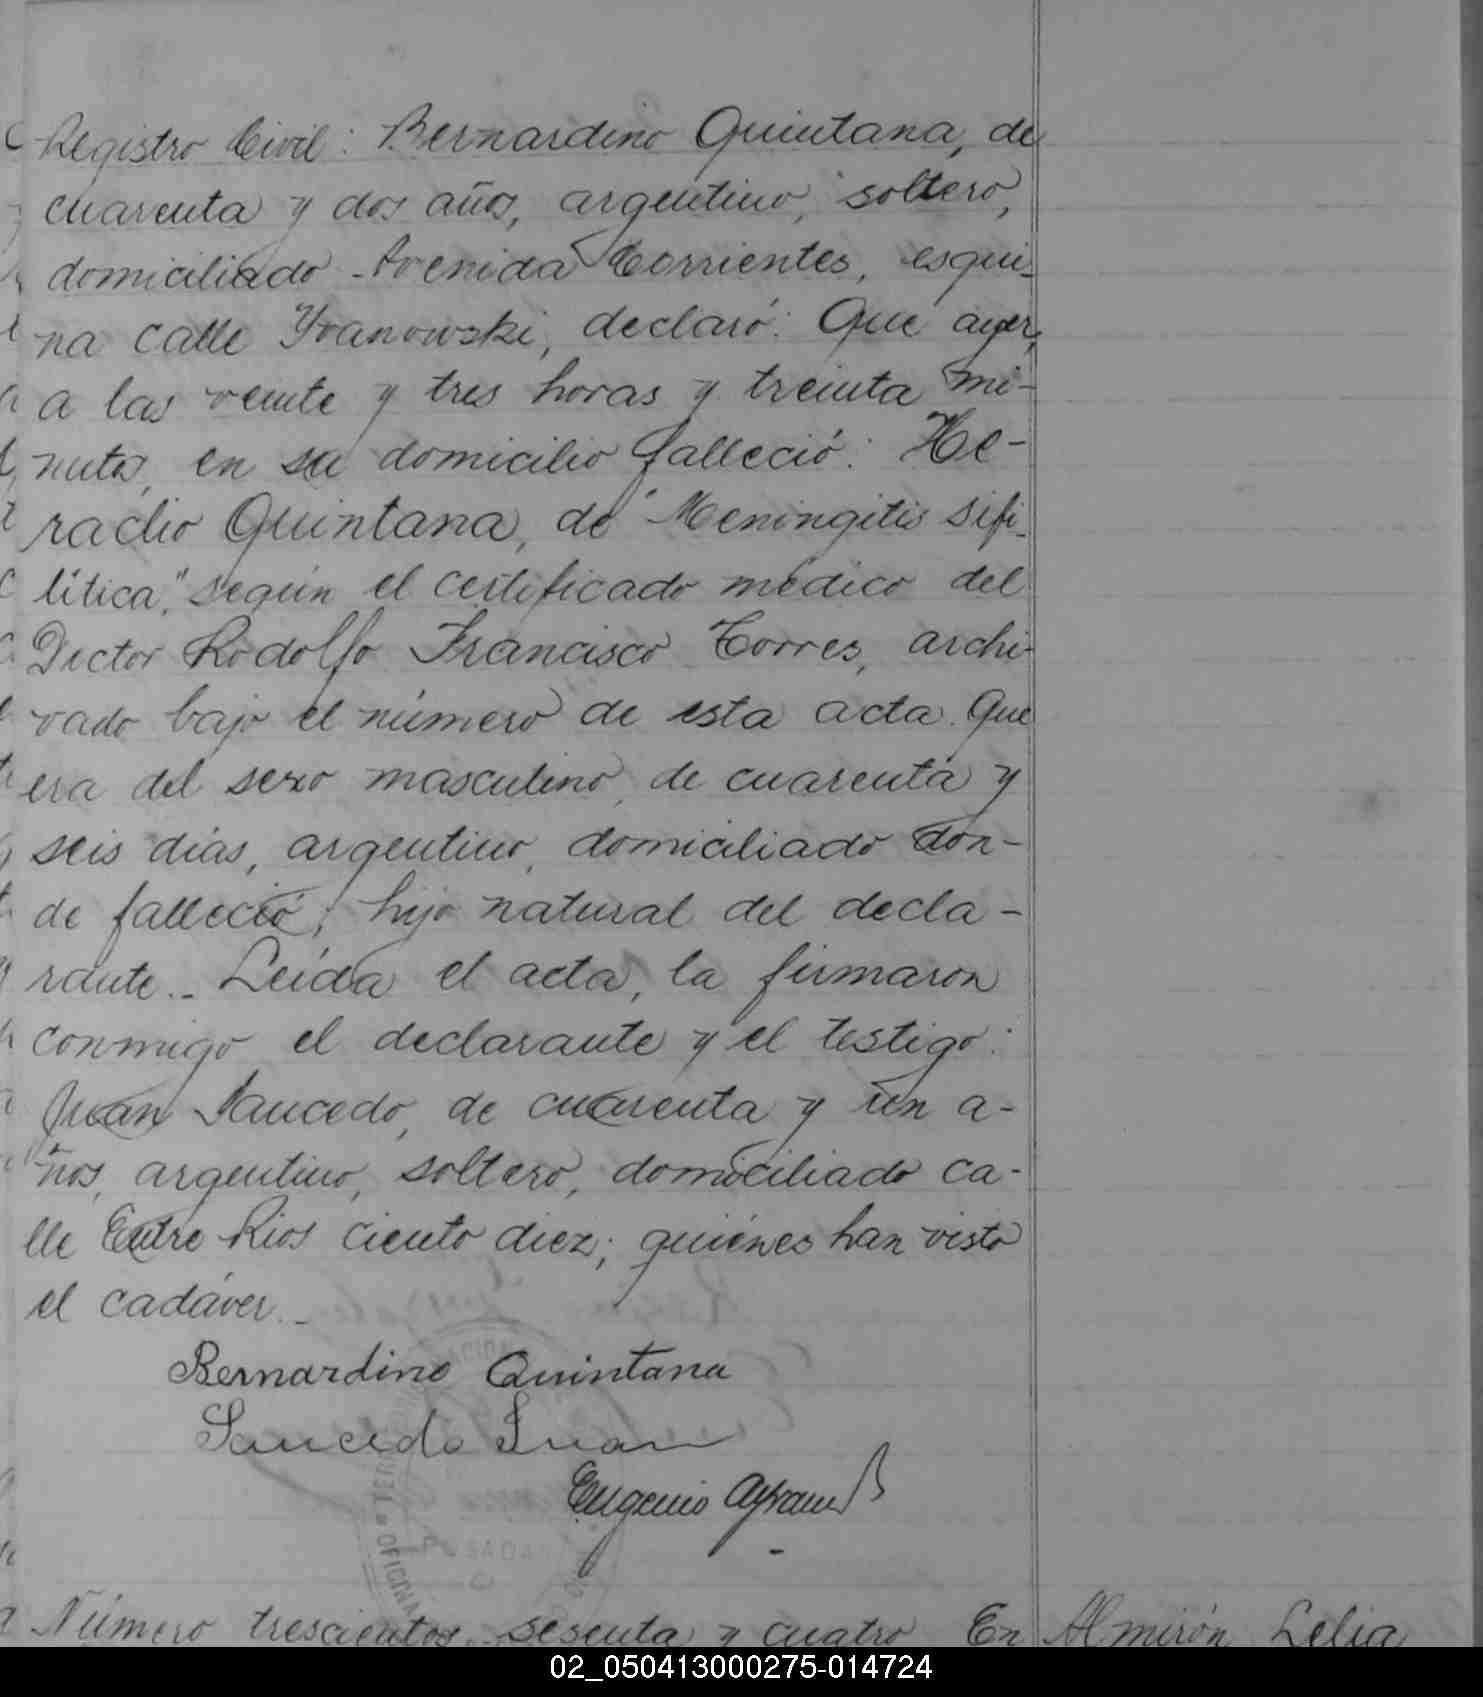 Registro Civil: Bernardino Quintana, de
cuarenta y dos años, argentino, soltero,
domiciliado Avenida Corrientes, esqui-
na calle Yvanowski, declaró: Que ayer,
a las veinte y tres horas y treinta mi-
nutos, en su domicilio falleció: He-
raclio Quintana, de "Meningitis sifi-
lítica," según el certificado médico del
Doctor Rodolfo Francisco Torres, archi-
vado bajo el número de esta acta. Que
era del sexo masculino, de cuarenta y
seis días, argentino, domiciliado don-
de falleció; hijo natural del decla-
rante.- Leída el acta, la firmaron
conmigo el declarante y el testigo:
Juan Saucedo, de cuarenta y un a-
ños, argentino, soltero, domiciliado ca-
lle Entre Rios ciento diez; quiénes han visto
el cadáver.-
Bernardino Quintana
Saucedo Juan
Eugenio
POSADAS
OFICINA
Número trescientos sesenta y cuatro En
Almirón Lelia
02_050413000275-014724